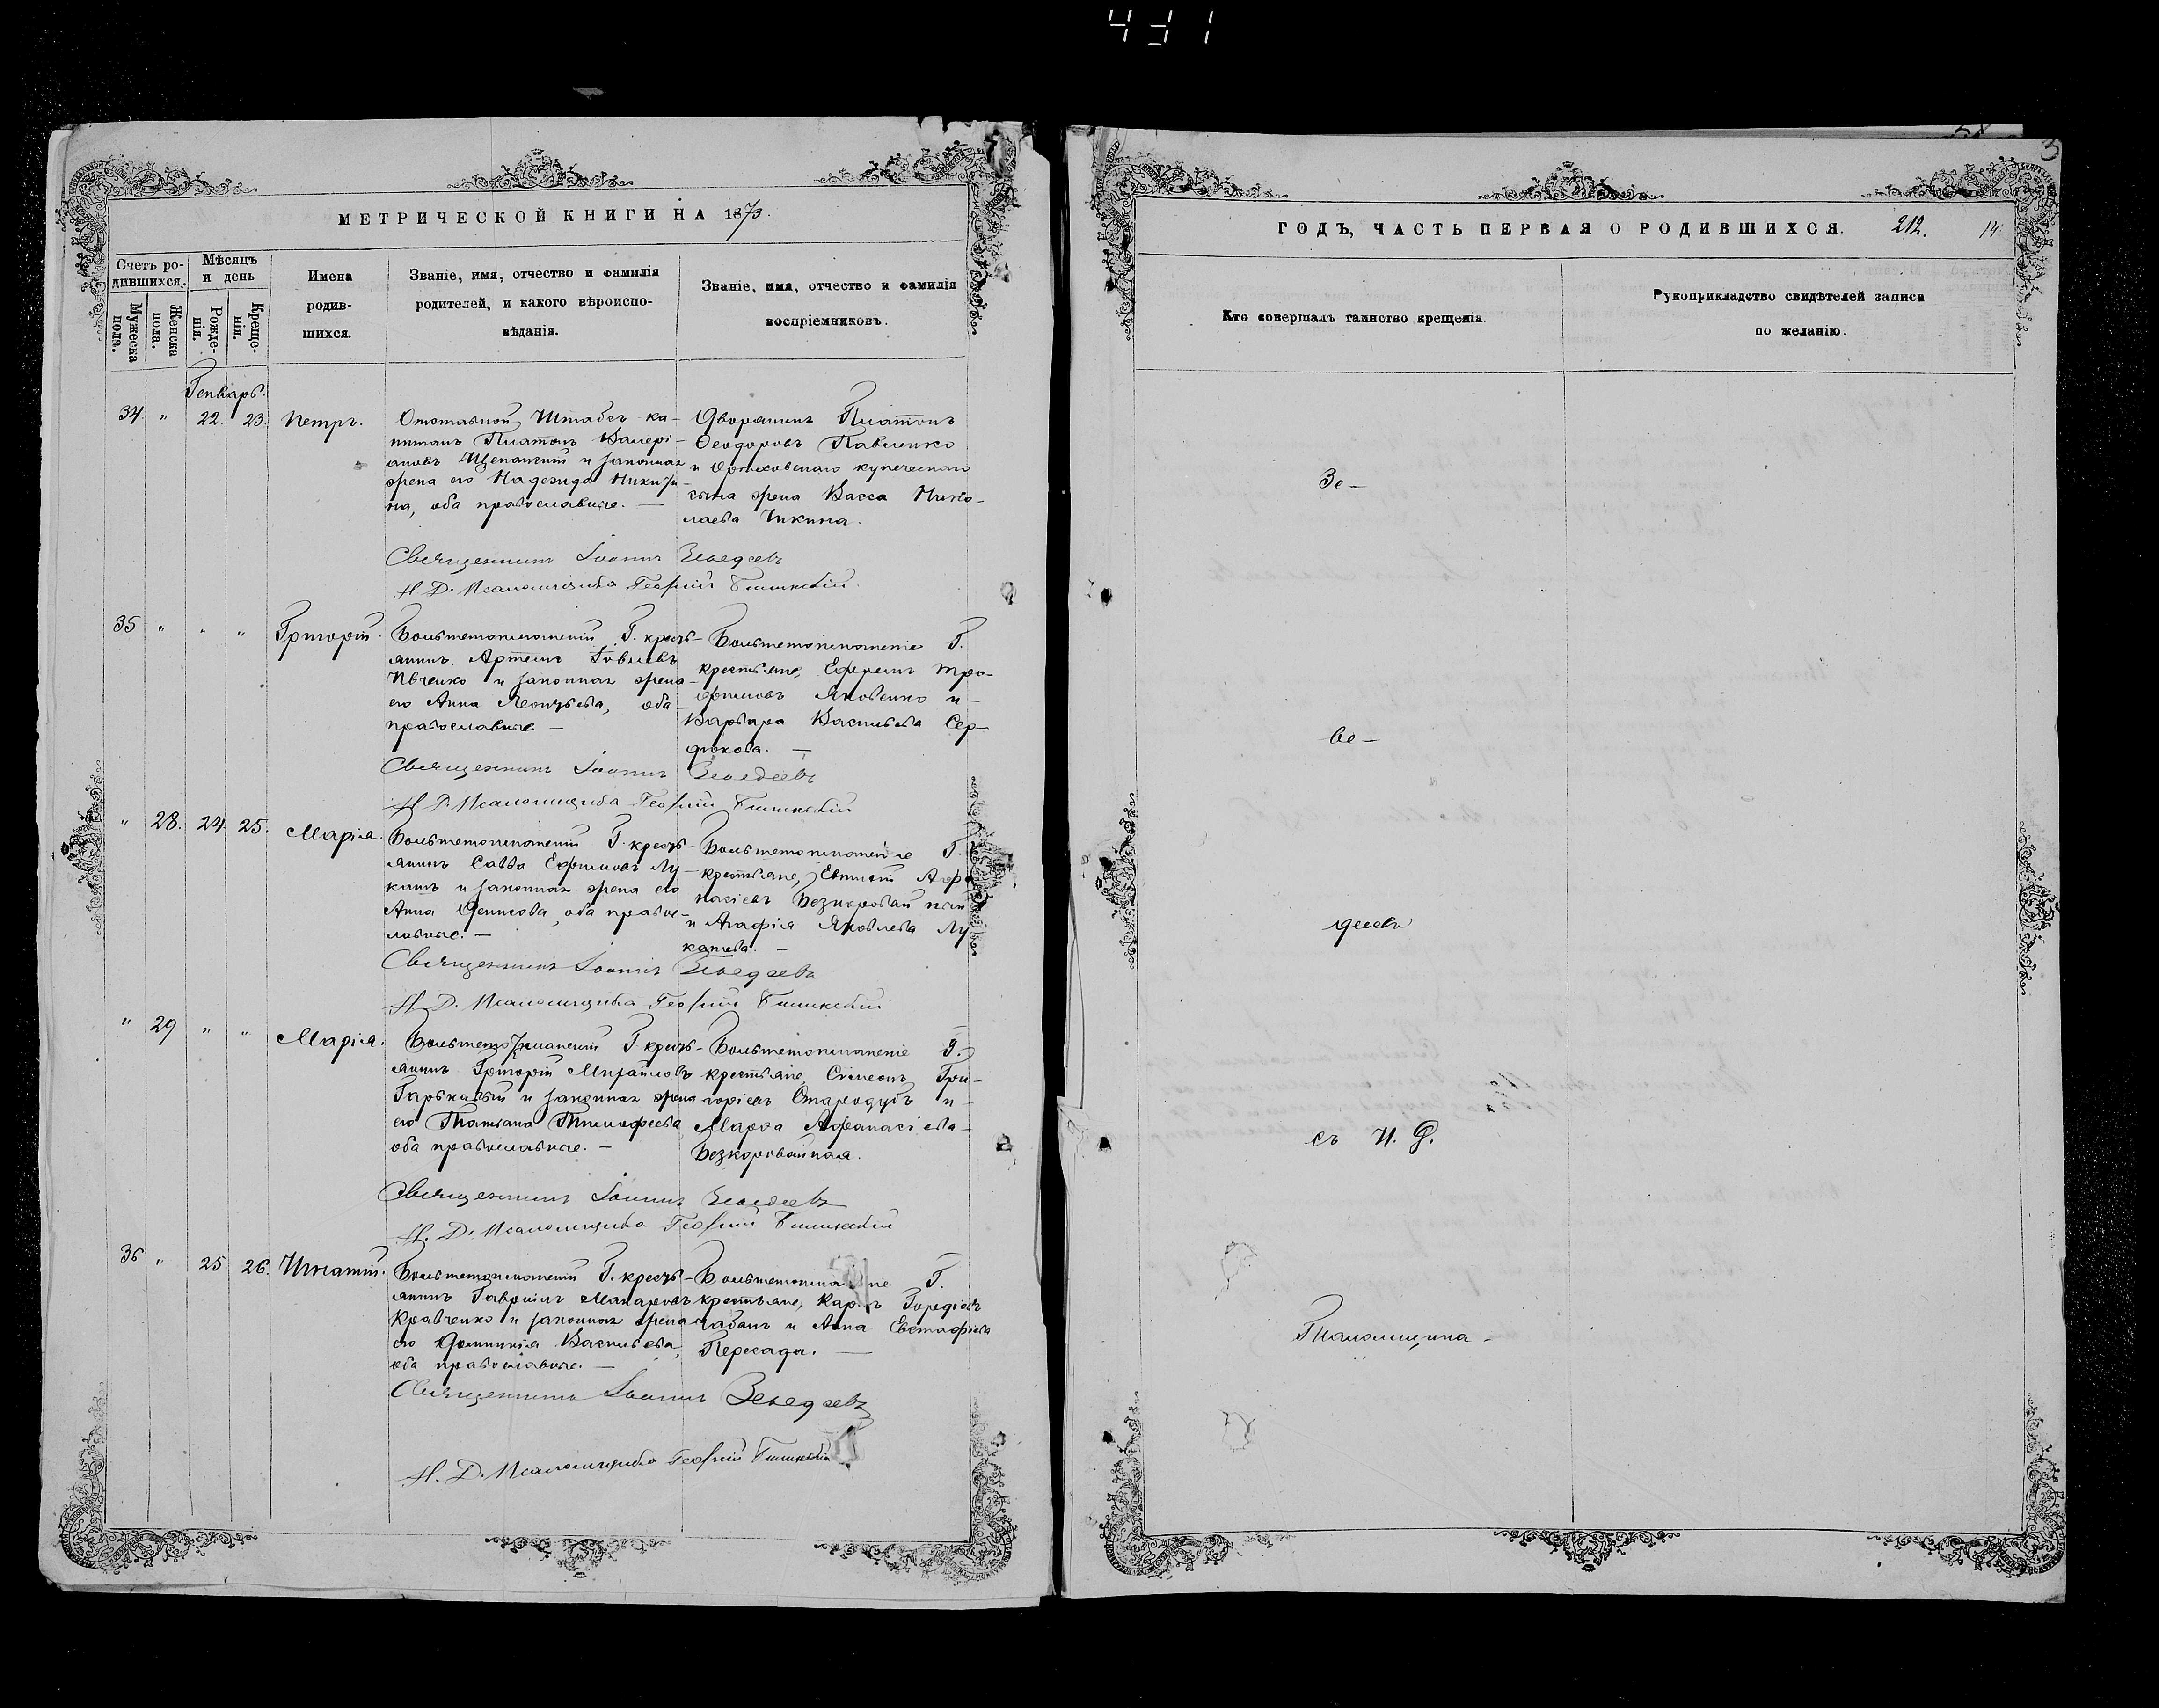 431
МЕТРИЧЕСКОЙ КНИГИ НА 1873.
Счетъ ро-
дившихся.
Мужеска
пола.
Женска
пола.
Мѣсяцъ
и день
Рожде-
нія.
Креще-
нія.
Имена
родив-
шихся.
Званіе, имя, отчество и фамилія
родителей, и какого вѣроиспо-
вѣданія.
Званіе, имя, отчество и фамилія
воспріемниковъ.
Генварь.
34. " 22. 23. Петръ.
Отставной Штабсъ ка-
питанъ Платонъ Валері-
ановъ и законная
жена его Надежда Ники
на, оба православные. —
Дворянинъ Платонъ
Феодоровъ Павленко
и Орѣховскаго купеческаго
сына жена Васса Нико-
лаева Чикина.
Священникъ Іоаннъ Зеведеевъ
И. Д. Псаломщика Георгій
35 " " " Григорій.
Большетокмачекій Г. кресть-
янинъ Артемъ Іовлевъ
Ивченко и законная жена
его Анна Леонтьева, оба
православные. —
Большетокмачекіе Г.
крестьяне, Ефремъ Тро-
фимовъ Яковенко и
Варвара Васильева Сер-
дюкова. —
Священникъ Іоаннъ Зеведеевъ
И. Д. Псаломщика Георгій
" 28. 24. 25. Марія.
Большетокмачекій Г. кресть-
янинъ Савва Ефимовъ Лу-
кашъ и законная жена его
Анна Денисова, оба правос-
лавные. —
Большетокмачекіе Г.
крестьяне, Евтихій Афа-
насіевъ Безкоровайный
и Агафія Яковлева Лу-
кашева. —
Священникъ Іоаннъ Зеведеевъ
И. Д. Псаломщика Георгій
" 29 " " Марія.
Большетокмачекій Г. кресть-
янинъ Григорій Михайловъ
Гарькавый и законная жена
его Татіана Тимофеева,
оба православные. —
Большетокмачекіе Г.
крестьяне, Симеонъ Гри-
горіевъ Стародубъ и
Марфа Афанасіева
Безкоровайная.
Священникъ Іоаннъ Зеведеевъ
И. Д. Псаломщика Георгій
36 " 25 26. Игнатій.
Большетокмачекій Г. кресть-
янинъ Гавріилъ Макаровъ
Кравченко и законная жена
его Домникія Васильева,
оба православные. —
Г.
крестьяне, Карпъ Гордіевъ
Чабанъ и Анна Евстафіева
Пересада. —
Священникъ Іоаннъ Зеведеевъ
И. Д. Псаломщика Георгій
ГОДЪ, ЧАСТЬ ПЕРВАЯ О РОДИВШИХСЯ. 212. 14
Кто совершалъ таинство крещенія.
Рукоприкладство свидѣтелей записи
по желанію.
Зе—
ве—
деевъ
съ И. Д.
Псаломщика —